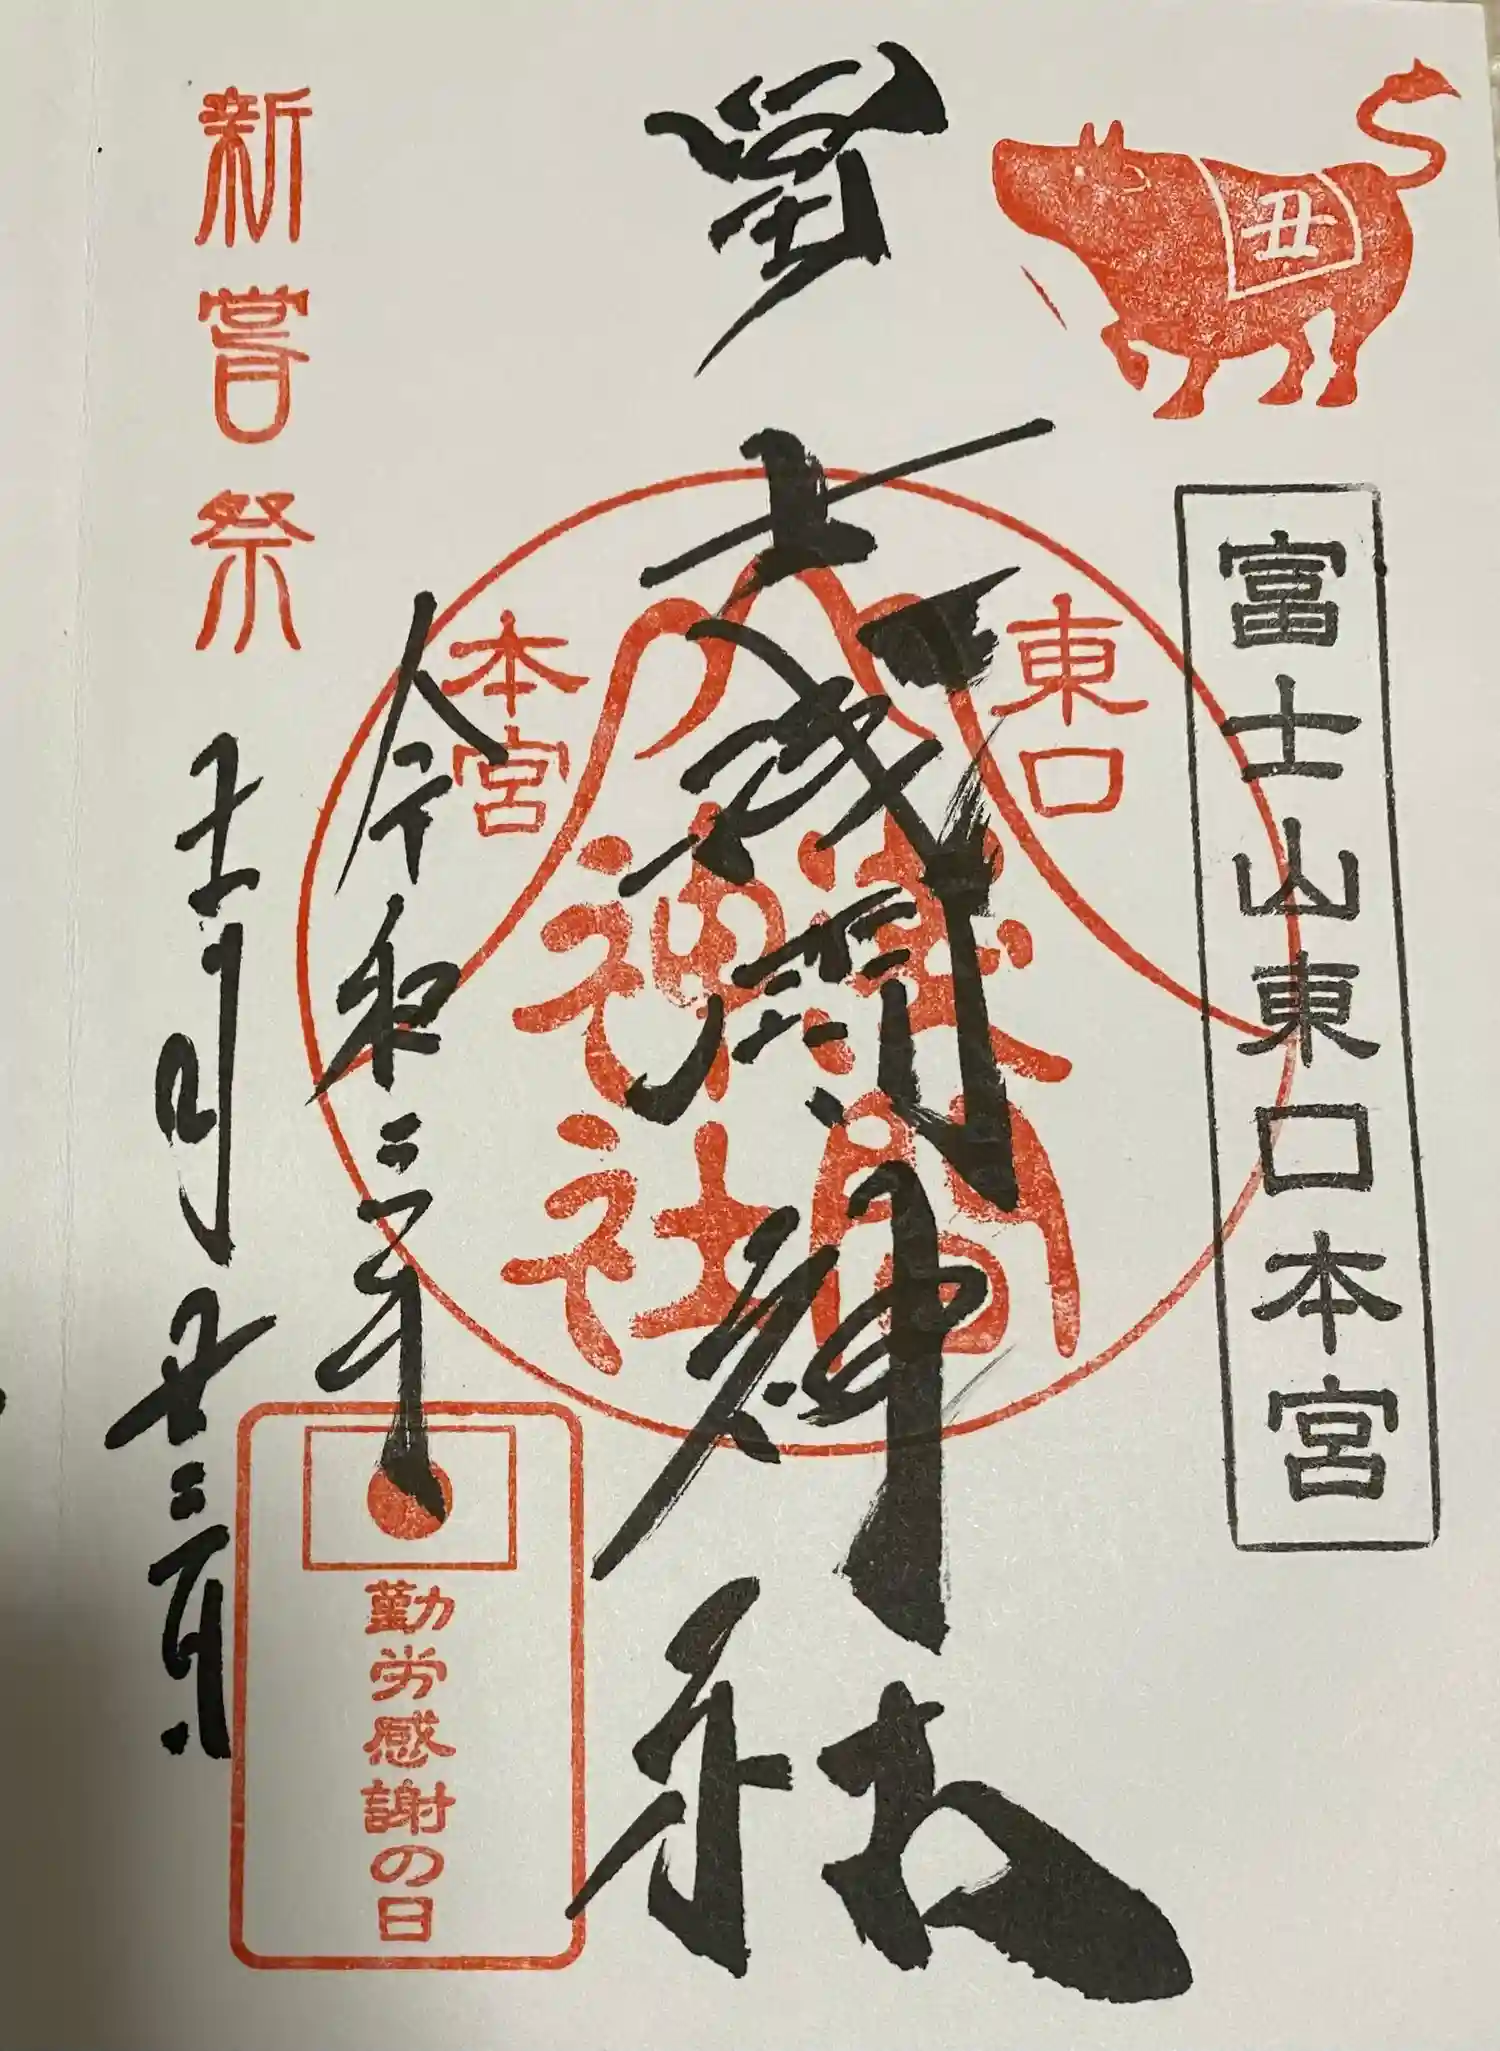 丑
富士山東口本宮
冨士浅間神社
東口
本宮
浅間
神社
令和三年
十一月廿三日
新嘗祭
勤労感謝の日